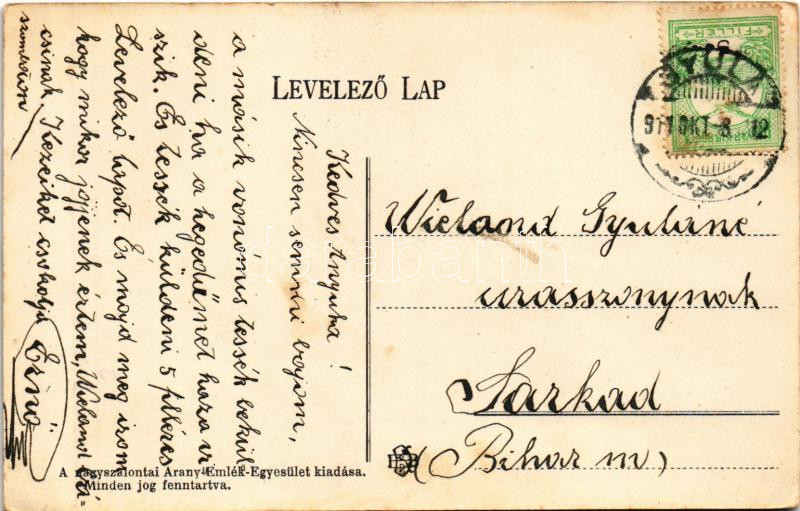 LEVELEZŐ LAP
FILLÉR
GYULA
911 OKT. 8. 12
Kedves Anyuka!
Nincsen semmi bajom,
a másik vonómis tessék bekül-
deni ha a hegedűmet haza vi
szik. És tessék küldeni 5 filléres
Levelező lapot. És majd meg irom
hogy mikor jöjjenek értem, Wieland
csinak. Kezeiket csokolja Ernő
szombaton
Wieland Gyuláné
urasszonynak
Sarkad
(Bihar m)
A nagyszalontai Arany-Emlék-Egyesület kiadása.
Minden jog fenntartva.
darabanth